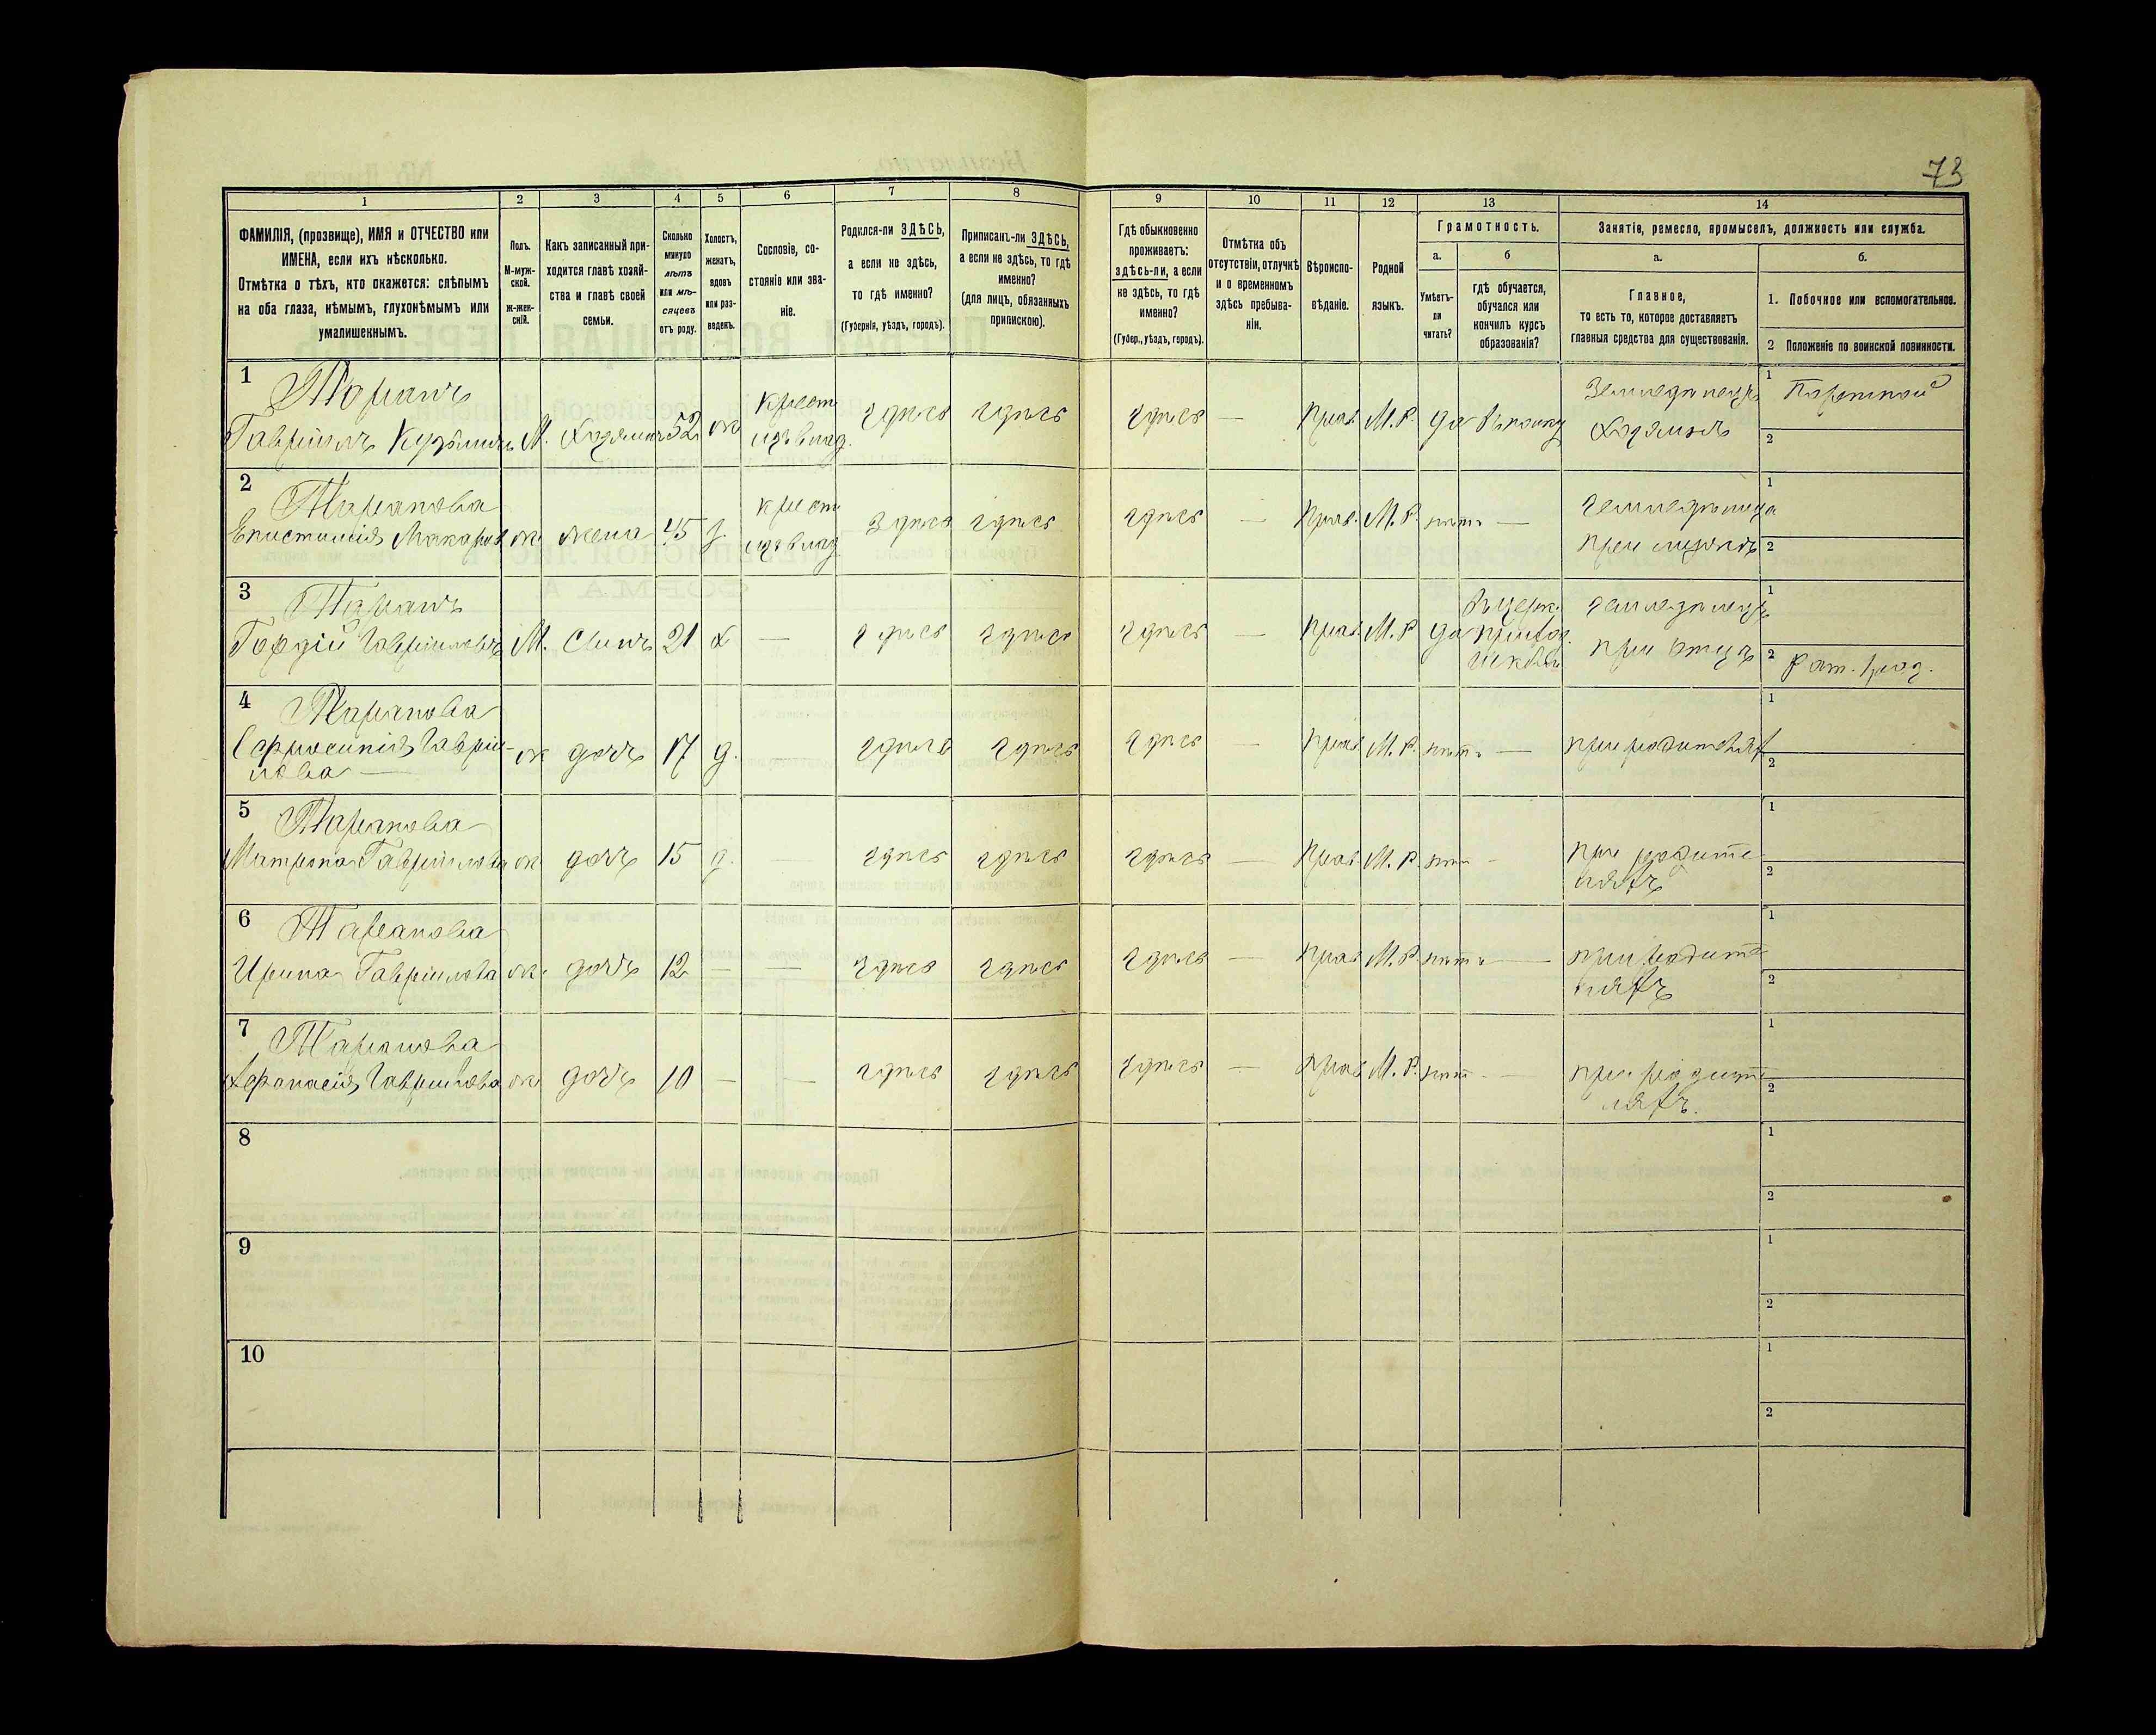 73
1 2 3 4 5 6 7 8 9 10 11 12 13 14
ФАМИЛІЯ, (прозвище), ИМЯ и ОТЧЕСТВО или
ИМЕНА, если ихъ нѣсколько.
Отмѣтка о тѣхъ, кто окажется: слѣпымъ
на оба глаза, нѣмымъ, глухонѣмымъ или
умалишеннымъ.
Полъ.
М-муж-
ской.
ж-жен-
скій.
Какъ записанный при-
ходится главѣ хозяй-
ства и главѣ своей
семьи.
Сколько
минуло
лѣтъ
или мѣ-
сяцевъ
отъ роду.
Холостъ,
женатъ,
вдовъ
или раз-
веденъ.
Сословіе, со-
стояніе или зва-
ніе.
Родился-ли ЗДѢСЬ,
а если не здѣсь,
то гдѣ именно?
(Губернія, уѣздъ, городъ).
Приписанъ-ли ЗДѢСЬ,
а если не здѣсь, то гдѣ
именно?
(для лицъ, обязанныхъ
припискою).
Гдѣ обыкновенно
проживаетъ:
здѣсь-ли, а если
не здѣсь, то гдѣ
именно?
(Губер., уѣздъ, городъ).
Отмѣтка объ
отсутствіи, отлучкѣ
и о временномъ
здѣсь пребыва-
ніи.
Вѣроиспо-
вѣданіе.
Родной
языкъ.
Грамотность.
а.
Умѣетъ-
ли
читать?
б
гдѣ обучается,
обучался или
кончилъ курсъ
образованія?
Занятіе, ремесло, промыселъ, должность или служба.
а.
Главное,
то есть то, которое доставляетъ
главныя средства для существованія.
б.
1. Побочное или вспомогательное.
2 Положеніе по воинской повинности.
1 Таранъ
Гавріилъ Кузьмичъ М. Хозяинъ 52 ж
Крест.
изъ влад.
здѣсь здѣсь здѣсь — Прав. М.Р. да
Земледѣлецъ
Хозяинъ
1
2
2 Таранова
Епистимія Макаров ж жена 45 з.
крест.
изъ влад.
здѣсь здѣсь здѣсь — Прав. М.Р. нѣтъ —
земледѣлица
при мужѣ
1
2
3 Таранъ
Гордій Гавріиловъ М. Сынъ 21 х — здѣсь здѣсь здѣсь — Прав. М.Р. да
Въ церк.
приход.
школѣ
земледѣлецъ
при отцѣ
1
2 Рат. 1 раз.
4 Таранова
Ефросинія Гавріи-
лова —
ж дочь 17 д. — здѣсь здѣсь здѣсь — Прав. М.Р. нѣтъ — при родителяхъ
1
2
5 Таранова
Матрона Гавріилова ж дочь 15 д. — здѣсь здѣсь здѣсь — Прав. М.Р. нѣтъ —
при родите
ляхъ
1
2
6 Таранова
Ирина Гавріилова ж. дочь 12 — — здѣсь здѣсь здѣсь — Прав. М.Р. нѣтъ —
при родите
ляхъ
1
2
7 Таранова
Афанасія Гавріилова ж дочь 10 — — здѣсь здѣсь здѣсь — Прав. М.Р. нѣтъ —
при родите
ляхъ.
1
2
8
1
2
9
1
2
10
1
2